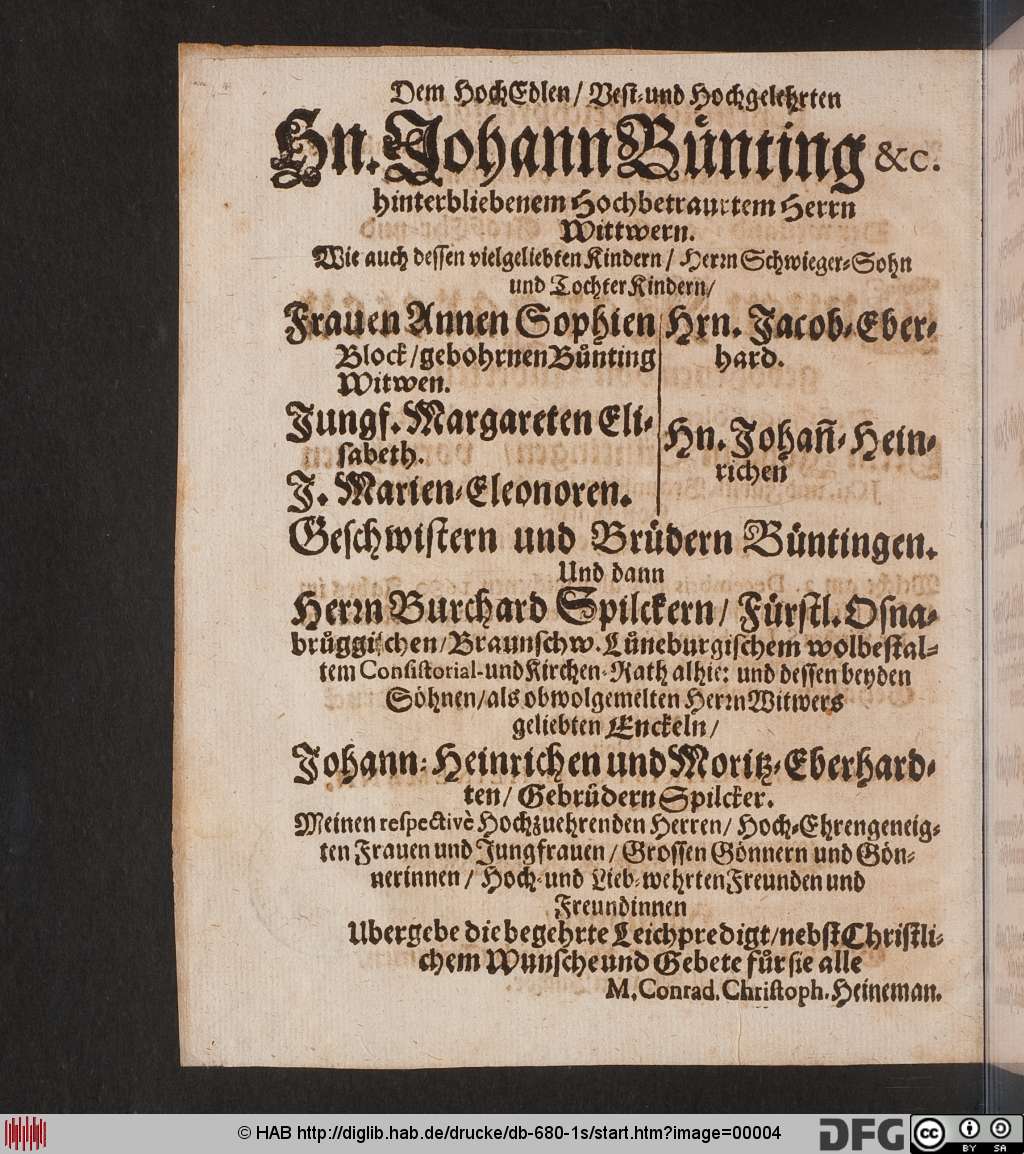 Dem HochEdlen / Vest-und Hochgelehrten
Hn. Johann Bünting &c.
hinterbliebenem Hochbetraurtem Herrn
Wittwern.
Wie auch dessen vielgeliebten Kindern / Herrn Schwieger-Sohn
und Tochter Kindern /
Frauen Annen Sophien
Block / gebohrnen Bünting
Witwen.
Jungf. Margareten Eli-
sabeth.
J. Marien-Eleonoren.
Hrn. Jacob-Eber-
hard.
Hn. Johañ-Hein-
richen
Geschwistern und Brüdern Büntingen.
Und dann
Herrn Burchard Spilckern / Fürstl. Osna-
brüggischen / Braunschw. Lüneburgischem wolbestal-
tem Consistorial-und Kirchen-Rath alhie: und dessen beyden
Söhnen / als obwolgemelten Herrn Witwers
geliebten Enckeln /
Johann-Heinrichen und Moritz-Eberhard-
ten / Gebrüdern Spilcker.
Meinen respectivè Hochzuehrenden Herren / Hoch-Ehrengeneig-
ten Frauen und Jungfrauen / Grossen Gönnern und Gön-
nerinnen / Hoch-und Lieb-wehrten Freunden und
Freundinnen
Ubergebe die begehrte Leichpredigt / nebst Christli-
chem Wunsche und Gebete für sie alle
M. Conrad. Christoph. Heineman.
© HAB http://diglib.hab.de/drucke/db-680-1s/start.htm?image=00004
DFG
cc BY SA